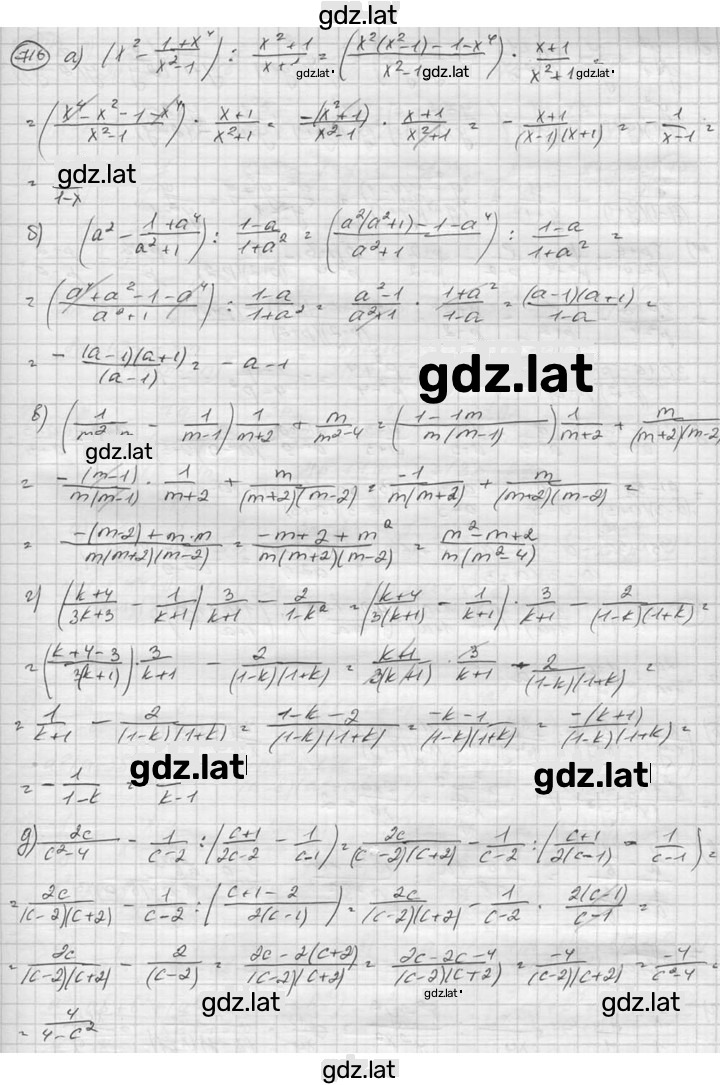 gdz.lat
716 а) (x² - (1+x⁴)/(x²-1)) : (x²+1)/(x+1) = ((x²(x²-1)-1-x⁴)/(x²-1)) · (x+1)/(x²+1) =
gdz.lat gdz.lat
= ((x⁴-x²-1-x⁴)/(x²-1)) · (x+1)/(x²+1) = (-(x²+1))/(x²-1) · (x+1)/(x²+1) = - (x+1)/((x-1)(x+1)) = - 1/(x-1) =
gdz.lat gdz.lat
= /(1-x)
б) (a² - (1+a⁴)/(a²+1)) : (1-a)/(1+a²) = ((a²(a²+1)-1-a⁴)/(a²+1)) : (1-a)/(1+a²) =
= ((a⁴+a²-1-a⁴)/(a²+1)) : (1-a)/(1+a²) = (a²-1)/(a²+1) · (1+a²)/(1-a) = ((a-1)(a+1))/(1-a) =
= - ((a-1)(a+1))/((a-1)) = -a-1
gdz.lat
в) (1/ - 1/(m-1)) 1/(m+2) + m/(m²-4) = ((1-1m)/(m(m-1))) 1/(m+2) + m/((m+2)(m-2)
gdz.lat
= (-(m-1))/(m(m-1)) · 1/(m+2) + m/((m+2)(m-2)) = (-1)/(m(m+2)) + m/((m+2)(m-2)) =
= (-(m-2)+m·m)/(m(m+2)(m-2)) = (-m+2+m²)/(m(m+2)(m-2)) = (m²-m+2)/(m(m²-4))
г) ((k+4)/(3k+3) - 1/(k+1)) 3/(k+1) - 2/(1-k²) = ((k+4)/(3(k+1)) - 1/(k+1)) · 3/(k+1) - 2/((1-k)(1+k)) =
= ((k+4-3)/(3(k+1))) · 3/(k+1) - 2/((1-k)(1+k)) = (k+1)/(3(k+1)) · 3/(k+1) - 2/((1-k)(1+k)) =
= 1/(k+1) - 2/((1-k)(1+k)) = (1-k-2)/((1-k)(1+k)) = (-k-1)/((1-k)(1+k)) = (-(k+1))/((1-k)(1+k)) =
gdz.lat gdz.lat
= - 1/(1-k) = /(k-1)
д) 2c/(c²-4) - 1/(c-2) : ((c+1)/(2c-2) - 1/(c-1)) = 2c/((c-2)(c+2)) - 1/(c-2) : ((c+1)/(2(c-1)) - 1/(c-1)) =
= 2c/((c-2)(c+2)) - 1/(c-2) : ((c+1-2)/(2(c-1))) = 2c/((c-2)(c+2)) - 1/(c-2) · (2(c-1))/(c-1) =
= 2c/((c-2)(c+2)) - 2/((c-2)) = (2c-2(c+2))/((c-2)(c+2)) = (2c-2c-4)/((c-2)(c+2)) = (-4)/((c-2)(c+2)) = (-4)/(c²-4) =
gdz.lat gdz.lat gdz.lat
= 4/(4-c²)
gdz.lat